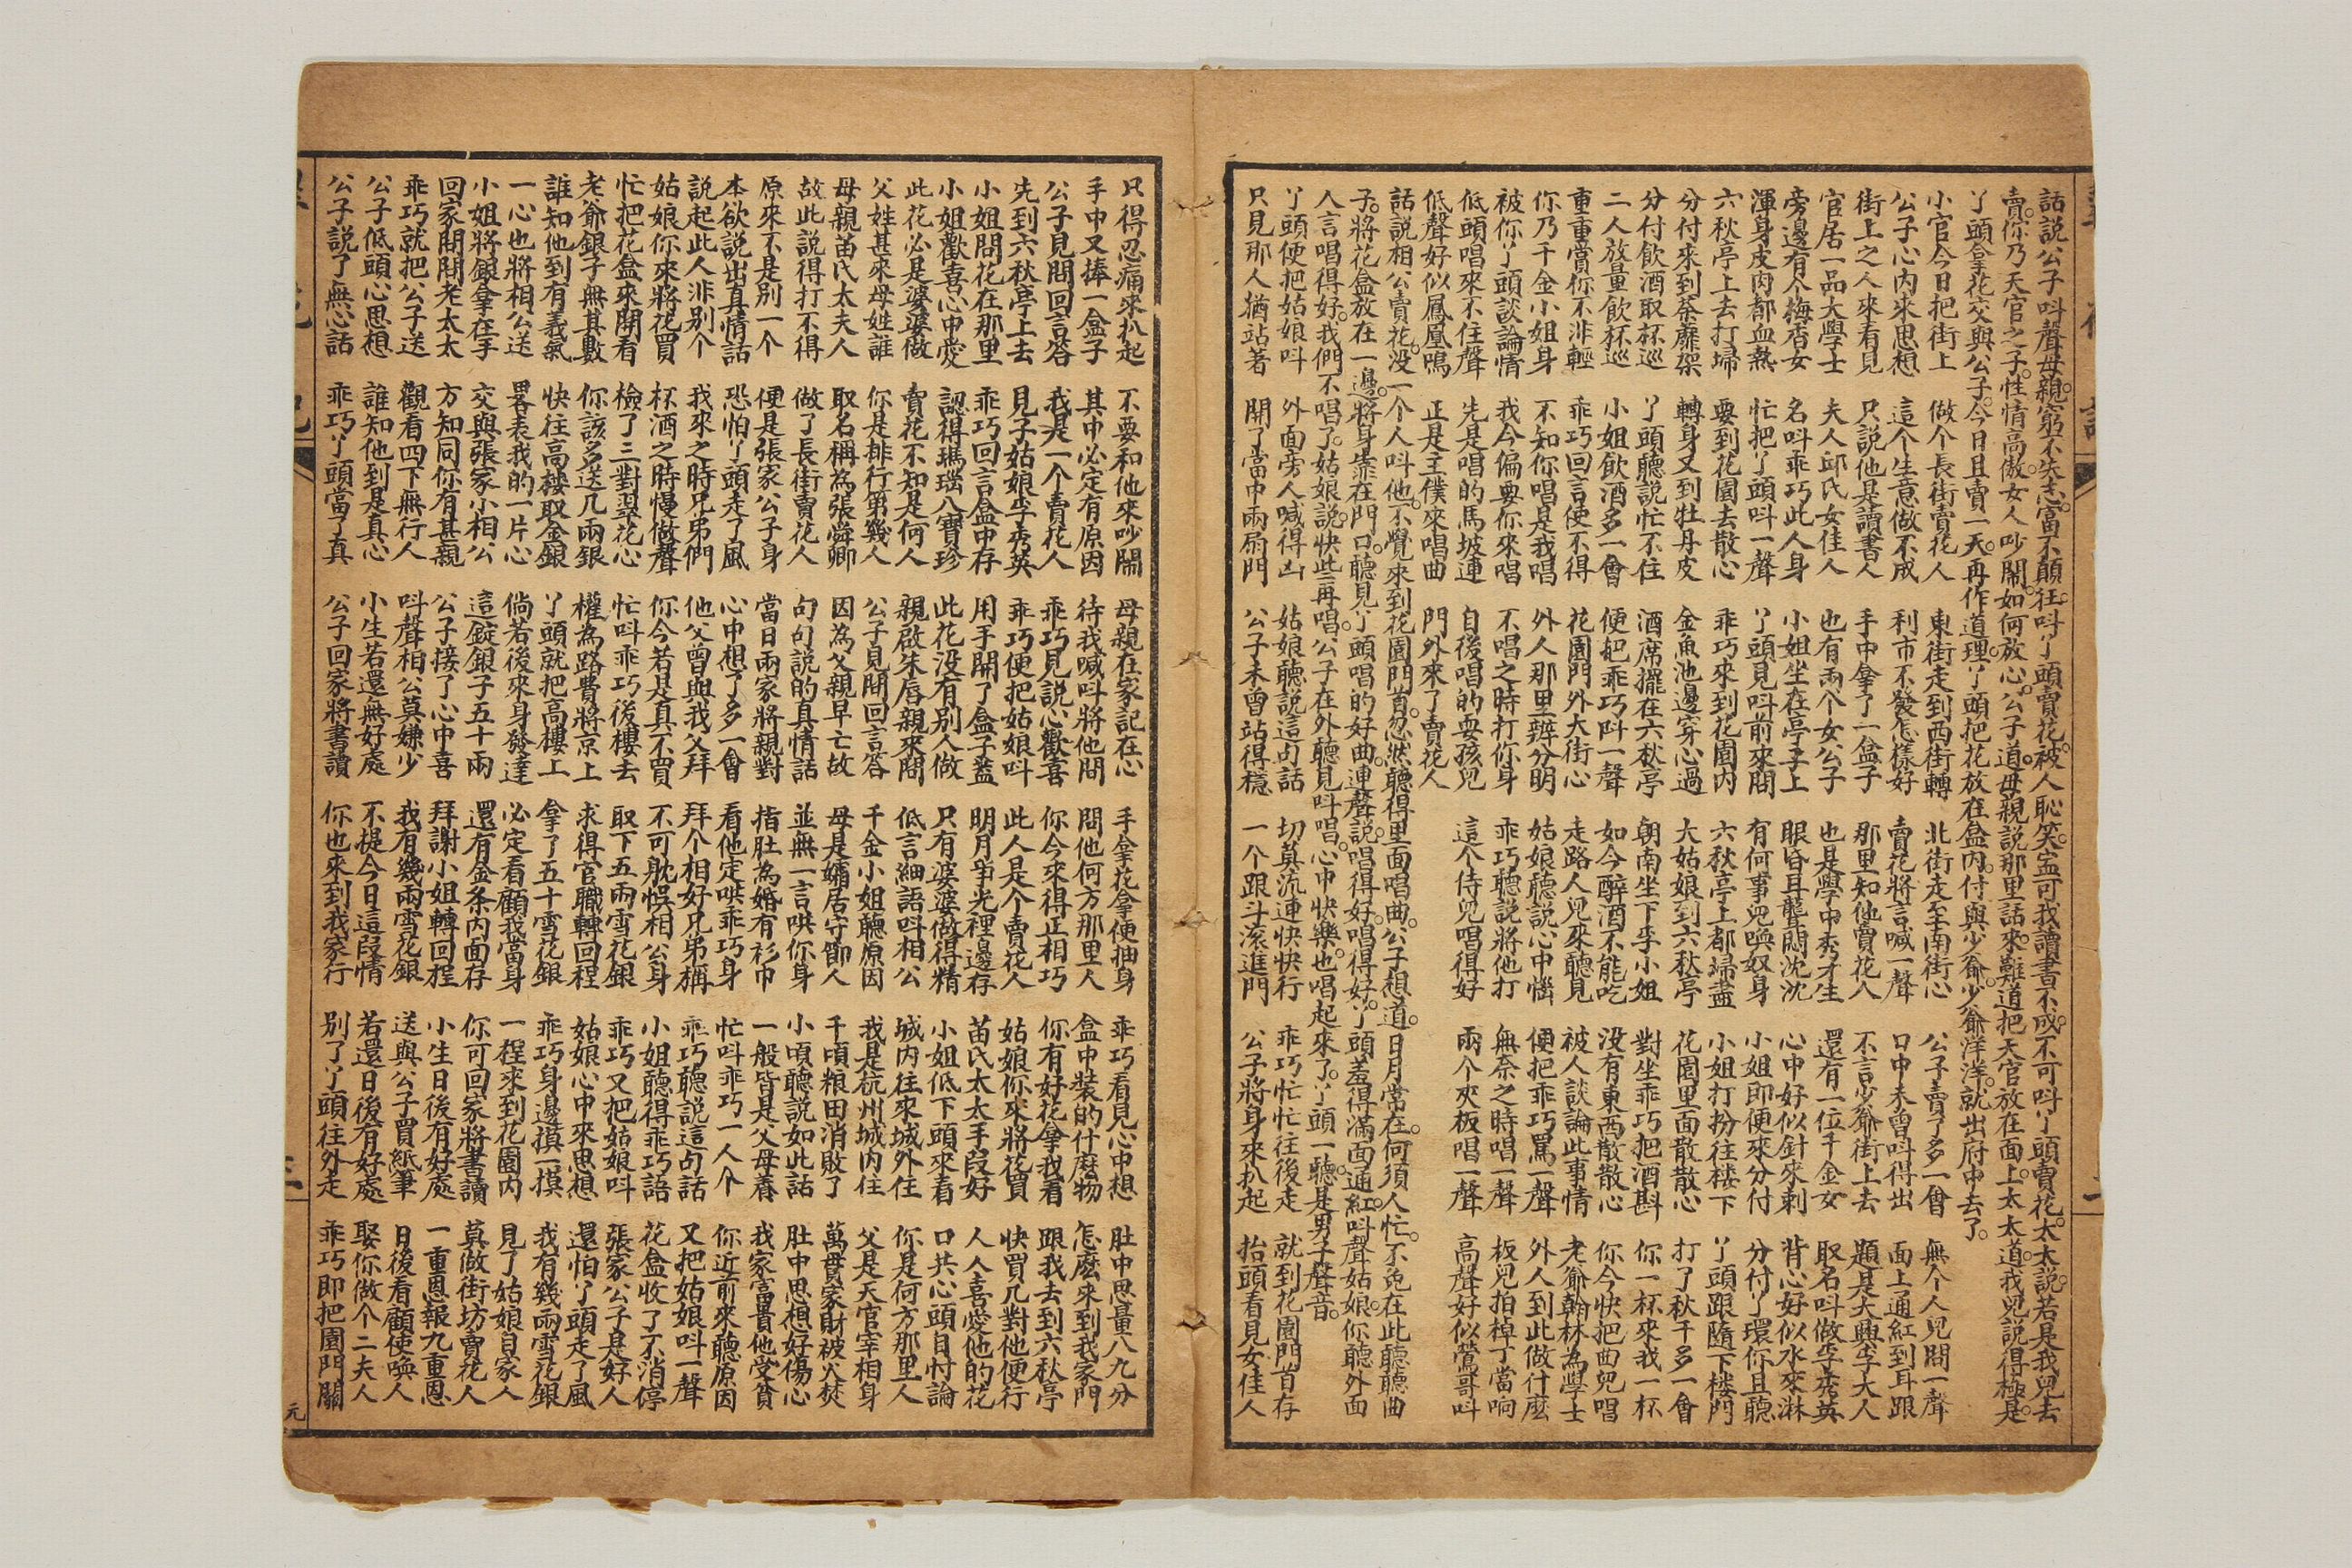 話說公子叫聲母親。窮不失志。富不顛狂。叫丫頭賣花。被人恥笑。寧可我讀書不成。不可叫丫頭賣花。太太說。若是我兒去
賣。你乃天官之子。性情高傲。女人吵鬧。如何放心。公子道。母親說那里話來。難道把天官放在面上。太太道。我兒說得極是。
丫頭拿花交與公子。今日且賣一天。再作道理。丫頭把花放在盒內。付與少爺。少爺洋洋。就出府中去了。
小官今日把街上 做个長街賣花人 東街走到西街轉 北街走至南街心 公子賣了多一會 無个人兒問一聲
公子心內來思想 這个生意做不成 利市不發怎樣好 賣花將言喊一聲 口中未曾叫得出 面上通紅到耳跟
街上之人來看見 只說他是讀書人 手中拿了一盒子 那里知他賣花人 不言少爺街上去 題是大興李大人
官居一品大學士 夫人邱氏女佳人 也有兩个女公子 也是學中秀才生 還有一位千金女 取名叫做李秀英
旁邊有个梅香女 名叫乖巧此人身 小姐坐在亭子上 眼昏耳聾悶沈沈 心中好似針來刺 背心好似水來淋
渾身皮肉都血熱 忙把丫頭叫一聲 丫頭見叫前來問 有何事兒喚奴身 小姐即便來分付 分付丫環你且聽
六秋亭上去打埽 要到花園去散心 乖巧來到花園內 六秋亭上都埽盡 小姐打扮往楼下 丫頭跟隨下楼門
分付來到荼蘼架 轉身又到牡丹皮 金魚池邊穿心過 大姑娘到六秋亭 花園里面散散心 打了秋千多一會
分付飲酒取杯巡 丫頭聽說忙不住 酒席擺在六秋亭 朝南坐下李小姐 對坐乖巧把酒斟 你一杯來我一杯
二人放量飲杯巡 小姐飲酒多一會 便把乖巧叫一聲 如今醉酒不能吃 没有東西散散心 你今快把曲兒唱
重重賞你不非輕 乖巧回言使不得 花園門外大街心 走路人兒來聽見 被人談論此事情 老爺翰林為學士
你乃千金小姐身 不知你唱是我唱 外人那里辨分明 姑娘聽說心中惱 便把乖巧罵一聲 外人到此做什麼
被你丫頭談論情 我今偏要你來唱 不唱之時打你身 乖巧聽說將他打 無奈之時唱一聲 板兒拍棹丁當响
低頭唱來不住聲 先是唱的馬坡連 自後唱的耍孩兒 這个侍兒唱得好 兩个夾板唱一聲 高聲好似鶯哥叫
低聲好似鳳凰鳴 正是主僕來唱曲 門外來了賣花人
話說相公賣花。没一个人叫他。不覺來到花園門首。忽然聽得里面唱曲。公子想道。日月常在。何須人忙。不免在此聽聽曲
子。將花盒放在一邊。將身靠在門口。聽見丫頭唱的好曲。連聲說。唱得好。唱得好。丫頭羞得滿面通紅。叫聲姑娘。你聽外面
人言唱得好。我們不唱了。姑娘說。快些再唱。公子在外聽見叫唱。心中快樂。也唱起來了。丫頭一聽。是男子聲音。
丫頭便把姑娘叫 外面旁人喊得凶 姑娘聽說這句話 切莫流連快快行 乖巧忙忙往後走 就到花園門首存
只見那人猶站着 開了當中兩扇門 公子未曾站得穩 一个跟斗滚進門 公子將身來扒起 抬頭看見女佳人
只得忍痛來扒起 不要和他來吵鬧 母親在家記在心 手拿花拿便抽身 乖巧看見心中想 肚中思量八九分
手中又捧一盒子 其中必定有原因 待我喊叫將他問 問他何方那里人 盒中裝的什麼物 怎麼來到我家門
公子見問回言答 我是一个賣花人 乖巧見說心歡喜 你今來得正相巧 你有好花拿我看 跟我去到六秋亭
先到六秋亭上去 見了姑娘李秀英 乖巧便把姑娘叫 此人是个賣花人 姑娘你來將花買 快買几對他便行
小姐問花在那里 乖巧回言盒中存 用手開了盒子蓋 明月爭光裡邊存 苗氏太太手段好 人人喜愛他的花
小姐歡喜心中愛 認得瑪瑙八寶珍 此花没有別人做 只有婆婆做得精 小姐低下頭來看 口共心頭自忖論
此花必是婆婆做 賣花不知是何人 親啟朱唇親來問 低言細語叫相公 城內往來城外住 你是何方那里人
父姓甚來母姓誰 你是排行第幾人 公子見問回言答 千金小姐聽原因 我是杭州城內住 父是天官宰相身
母親苗氏太夫人 取名稱為張舜卿 因為父親早亡故 母是孀居守節人 千頃粮田消敗了 萬貫家財被火焚
故此說得打不得 做了長街賣花人 句句說的真情話 並無一言哄你身 小頃聽說如此話 肚中思想好傷心
原來不是別一个 便是張家公子身 當日兩家將親對 指肚為婚有衫巾 一般皆是父母養 我家富貴他受貧
本欲說出真情話 恐怕丫頭走了風 心中想了多一會 看他定哄乖巧身 忙叫乖巧一人个 你近前來聽原因
說起此人非別个 我來之時兄弟們 他父曾與我父拜 拜个相好兄弟稱 乖巧聽說這句話 又把姑娘叫一聲
姑娘你來將花買 杯酒之時慢做聲 你今若是真不買 不可躭悮相公身 小姐聽得乖巧語 花盒收了不消停
忙把花盒來開看 檢了三對翠花心 忙叫乖巧後樓去 取下五兩雪花銀 乖巧又把姑娘叫 張家公子是好人
老爺銀子無其數 你該多送几兩銀 權為路費將京上 求得官職轉回程 姑娘心中來思想 還怕丫頭走了風
誰知他到有義氣 快往高楼取金銀 丫頭就把高樓上 拿了五十雪花銀 乖巧身邊摸一摸 我有幾兩雪花銀
一心也將相公送 畧表我的一片心 倘若後來身發達 必定看顧我當身 一程來到花園內 見了姑娘自家人
小姐將銀拿在手 交與張家小相公 這錠銀子五十兩 還有金条內面存 你可回家將書讀 莫做街坊賣花人
回家開開老太太 方知同你有甚親 公子接了心中喜 拜謝小姐轉回程 小生日後有好處 一重恩報九重恩
乖巧就把公子送 觀看四下無行人 叫聲相公莫嫌少 我有幾兩雪花銀 送與公子買紙筆 日後看顧使喚人
公子低頭心思想 誰知他到是真心 小生若還無好處 不提今日這段情 若還日後有好處 娶你做个二夫人
公子說了無心話 乖巧丫頭當了真 公子回家將書讀 你也來到我家行 別了丫頭往外走 乖巧即把園門關
三
元